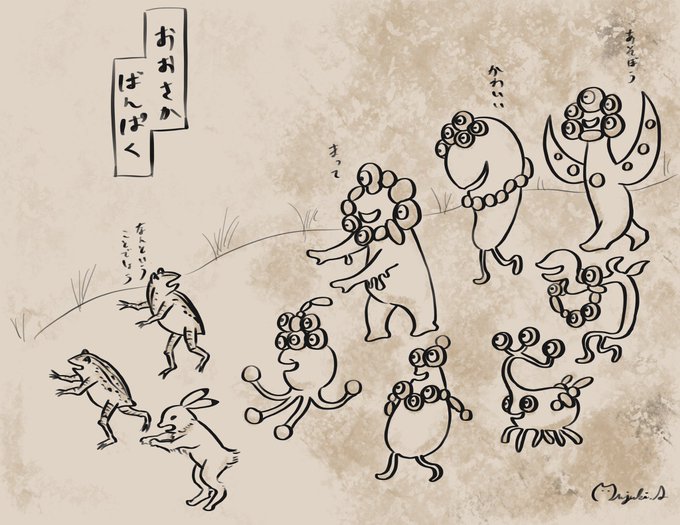 おおさか
ばんぱく
あそぼう
かわいい
まって
なんという
ことでしょう